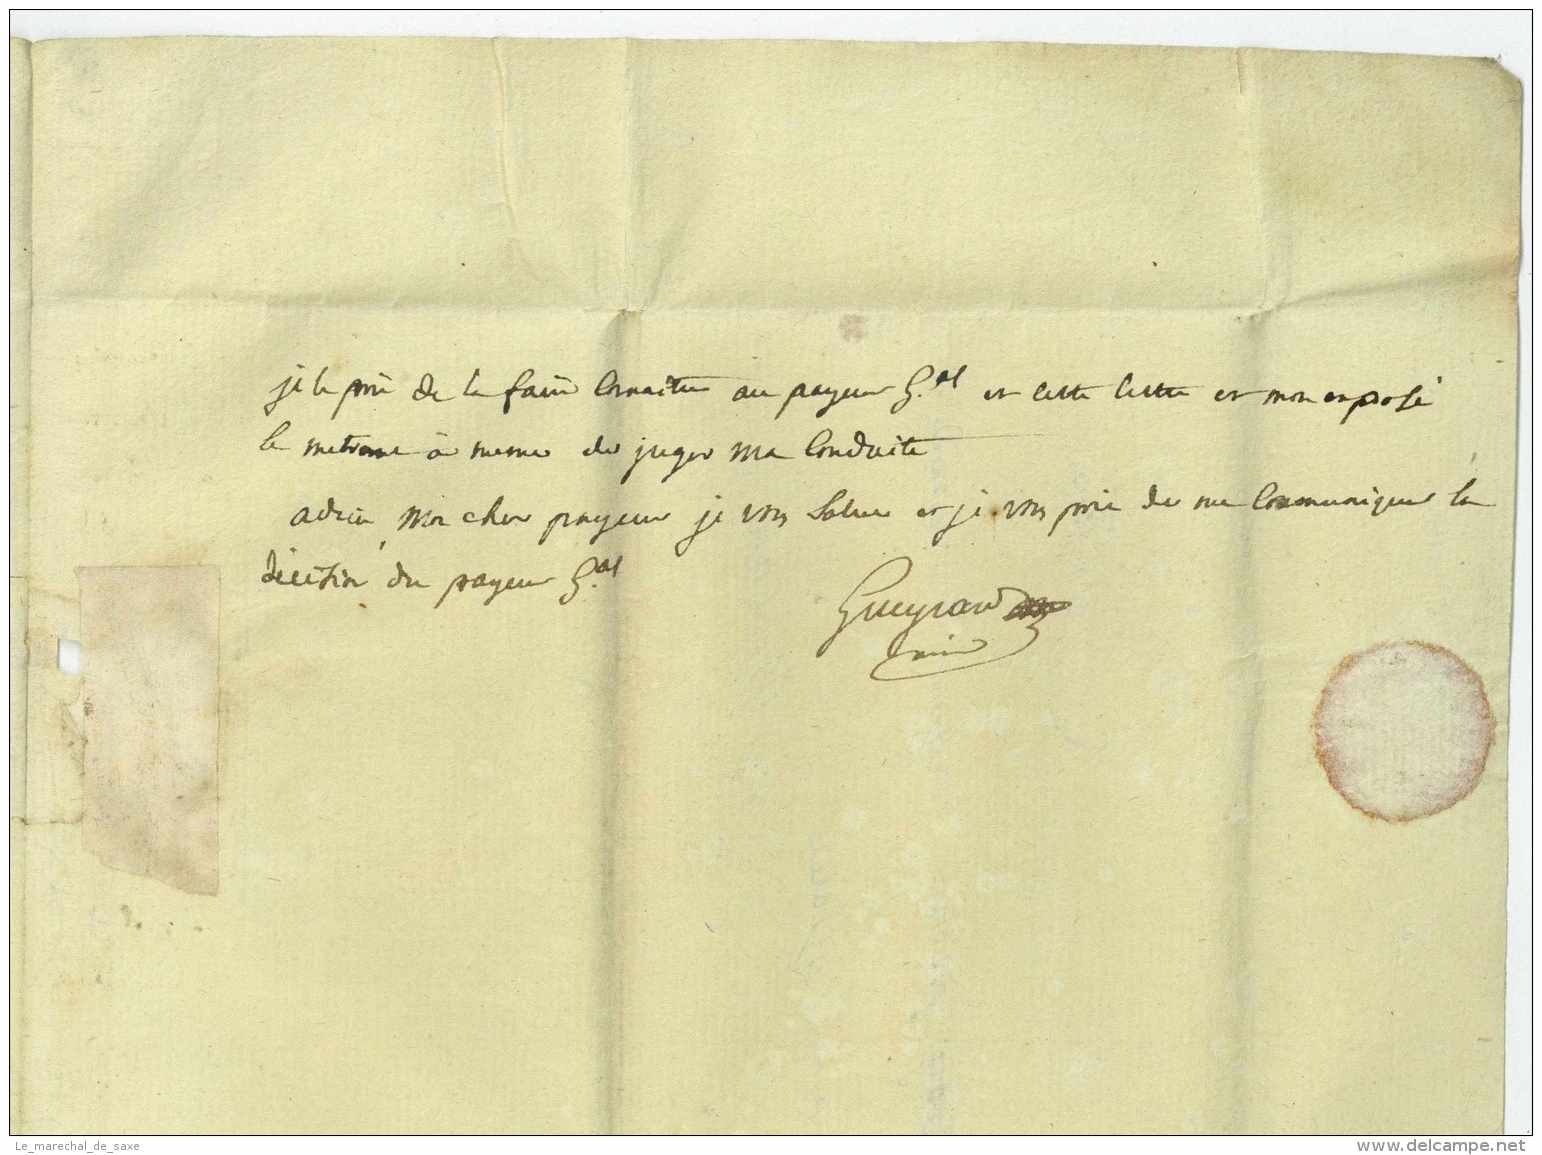 je le prie de la faire Connaitre au payeur G.al et cette lettre et mon exposé
le mettrons à meme de juger ma Conduite
adieu, mon cher payeur je vous Salue et je vous prie de me Communiquer la
décision du payeur G.al
Gueyrard
ainé
Le_marechal_de_saxe
www.delcampe.net